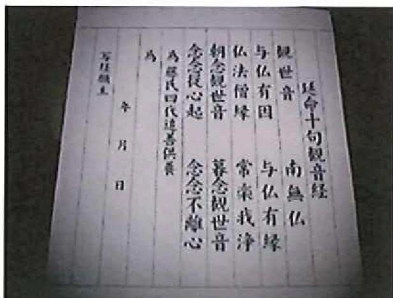 延命十句観音経
観世音 南無仏
与仏有因 与仏有縁
仏法僧縁 常楽我浄
朝念観世音 暮念観世音
念念従心起 念念不離心
為 藤氏四代追善供養
為
年 月 日
写経願主